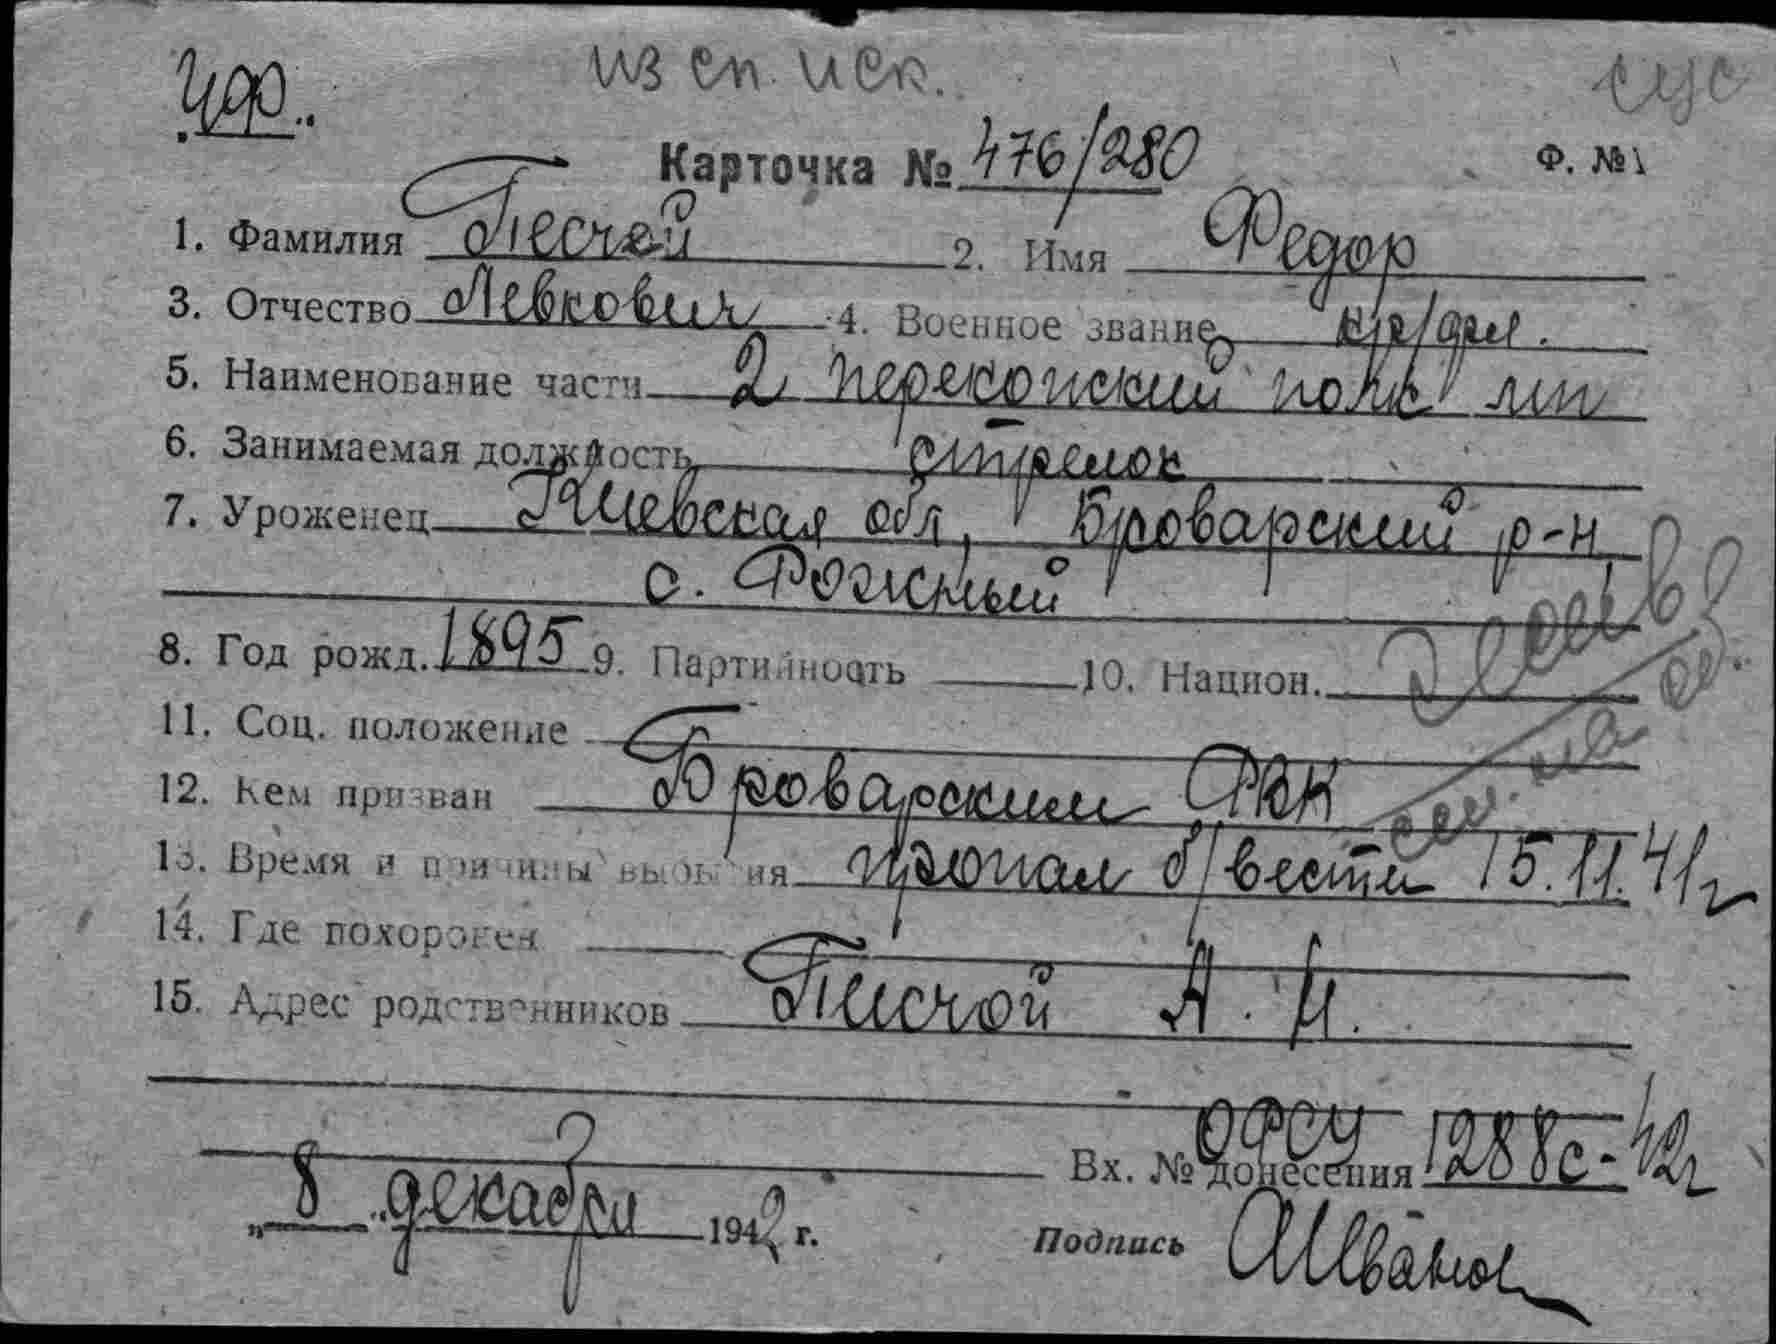 из сп. иск.
Карточка № 476/280
Ф. №1
1. Фамилия Песчей 2. Имя Федор
3. Отчество Левкович 4. Военное звание кр/фл.
5. Наименование части 2 перекопский полк мп
6. Занимаемая должность стрелок
7. Уроженец Киевская обл, Броварский р-н
с. Рожный
8. Год рожд. 1895 9. Партийность 10. Национ.
11. Соц. положение
12. Кем призван Броварским РВК
13. Время и причины выбытия пропал б/вести 15.11.41г
14. Где похоронен
15. Адрес родственников Писчой А. И.
Вх. № донесения ОФСУ 1288с-42г
„8" декабря 1942 г.
Подпись АИванов